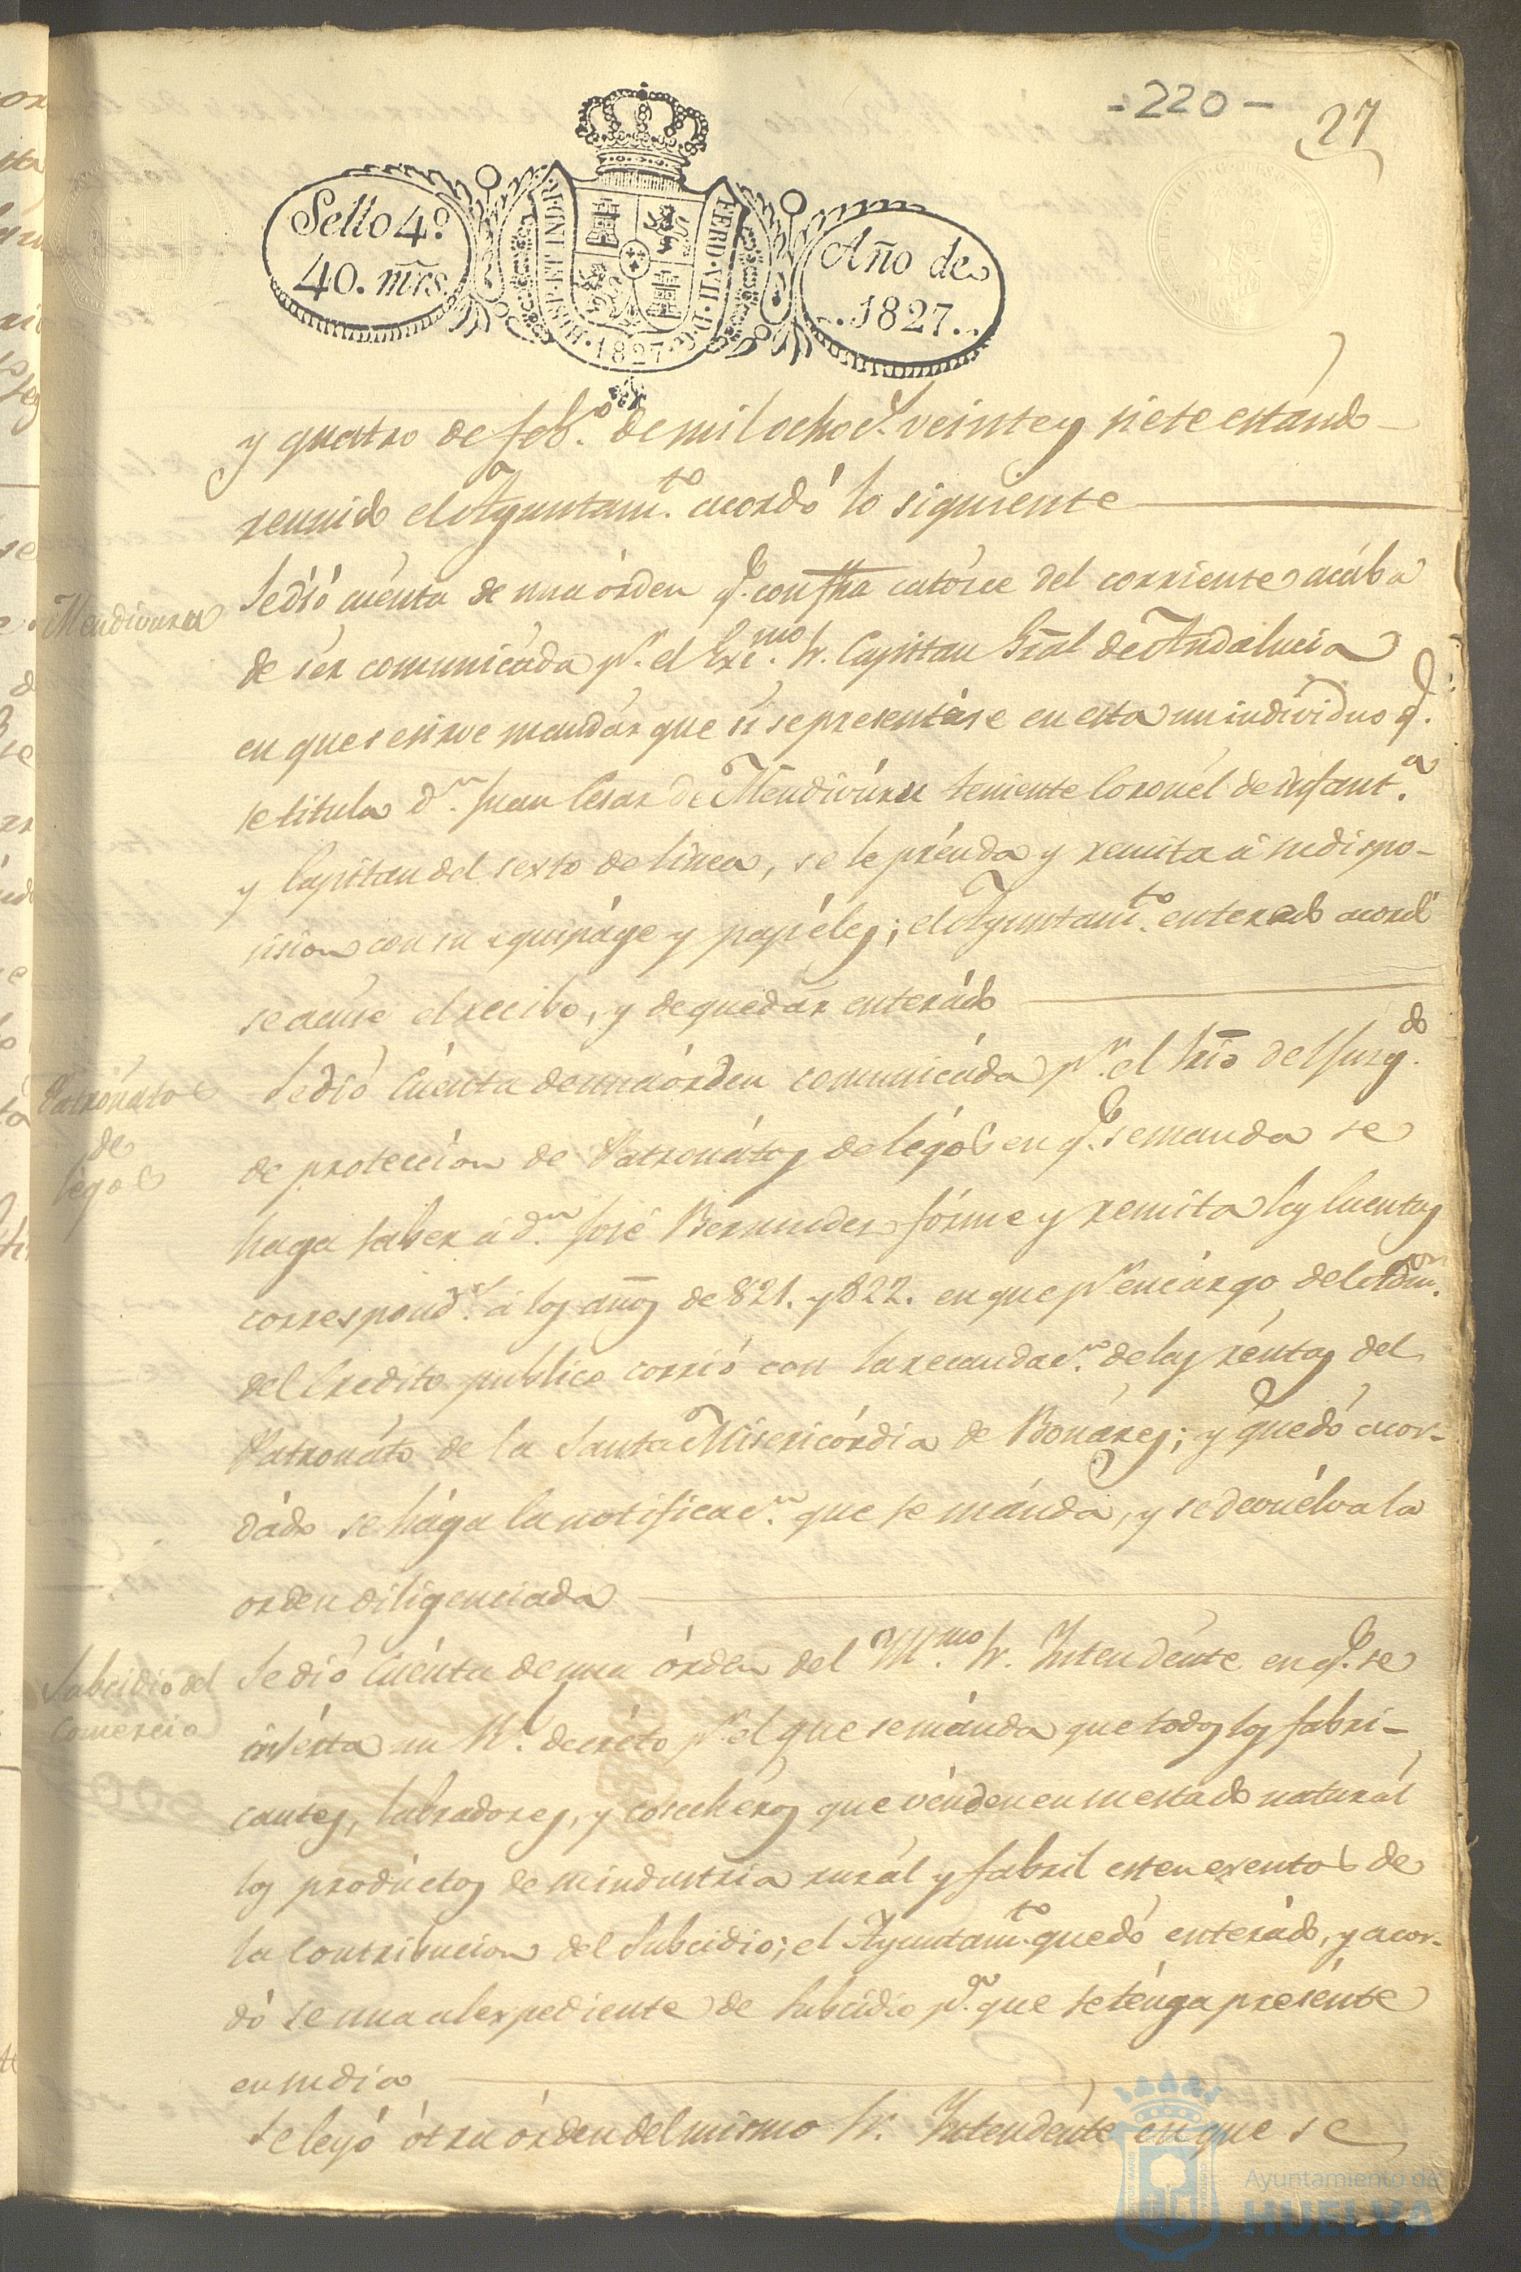 -220-
27
Sello 4º
40. mrs
HISP. ET IND. R.
FERD. VII. D. G.
1827
Año de
1827
y quatro de febº. de mil ochocs. veinte y siete estando
reunido el Ayuntamto. acordó lo siguiente
Mendivuru
Se dió cuenta de una órden q. con fha catorce del corriente acába
de ser comunicáda pr. el Excmo. Sr. Capitan Gral de Andalucia
en que se sirve mandár que si se presentáse en esta un individuo q.
se titula dn. Juan Cesar de Mendivúru teniente Coronél de Infanta.
y Capitan del sexto de linea, se le prénda y remita á su dispo-
sision con su equipáge y papéles; el Ayuntamto. enterado acordó
se acuse el recibo, y de quedár enterádo
Patronato
de
légos
Se dió Cuénta de una órden comunicáda pr. el Srio del Juzgdo.
de protección de Patronátos de légos en q. se manda se
haga saber á dn. José Bermudez fórme y remita las Cuentas
correspondts. á los años de 821. y 822. en que pr. encárgo del Admor.
del Credito publico corrió con la recaudacn. de las réntas del
Patronáto de la Santa Misericórdia de Bonáres; y quedó acor-
dádo se hága la notificacn. que se mánda, y se devuélva la
orden diligenciada
Subcidio del
Comercio
Se dió Cuénta de una órden del Yltmo. Sr. Intendénte en q. se
insérta un Rl. decréto pr. el que se mánda que todos los fabri-
cantes, labradores, y cosechéros que vénden en su estado naturál
los prodúctos de su industria rurál y fabril esten exentos de
la Contribucion del Subcidio; el Ayuntamto. quedó enterádo, y acor-
dó se una al expediente de Subcidio pa. que se ténga presénte
en su dia
Se leyó ótra órden del mismo Sr. Intendénte en que se
Ayuntamiento de
HUELVA